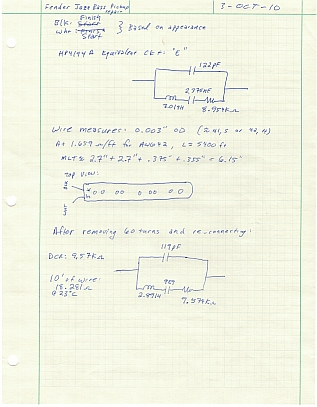 Fender Jazz Bass Pickup
repair
3-OCT-10
Blk: Finish
Start
Wht: Finish
Start
} Based on appearance
HP4194A Equivalent CKT: "E"
122pF
Wire measures: 0.003" OD
At 1.659 Ω/ft for AWG42, L = 5900 ft
MLT ≈ 2.7" + 2.7" + .375" + .355" = 6.15"
Top View:
After removing 60 turns and re-connecting:
119pF
DCR: 9.57KΩ
10' of wire:
18.281Ω
@ 23°C
2.89H